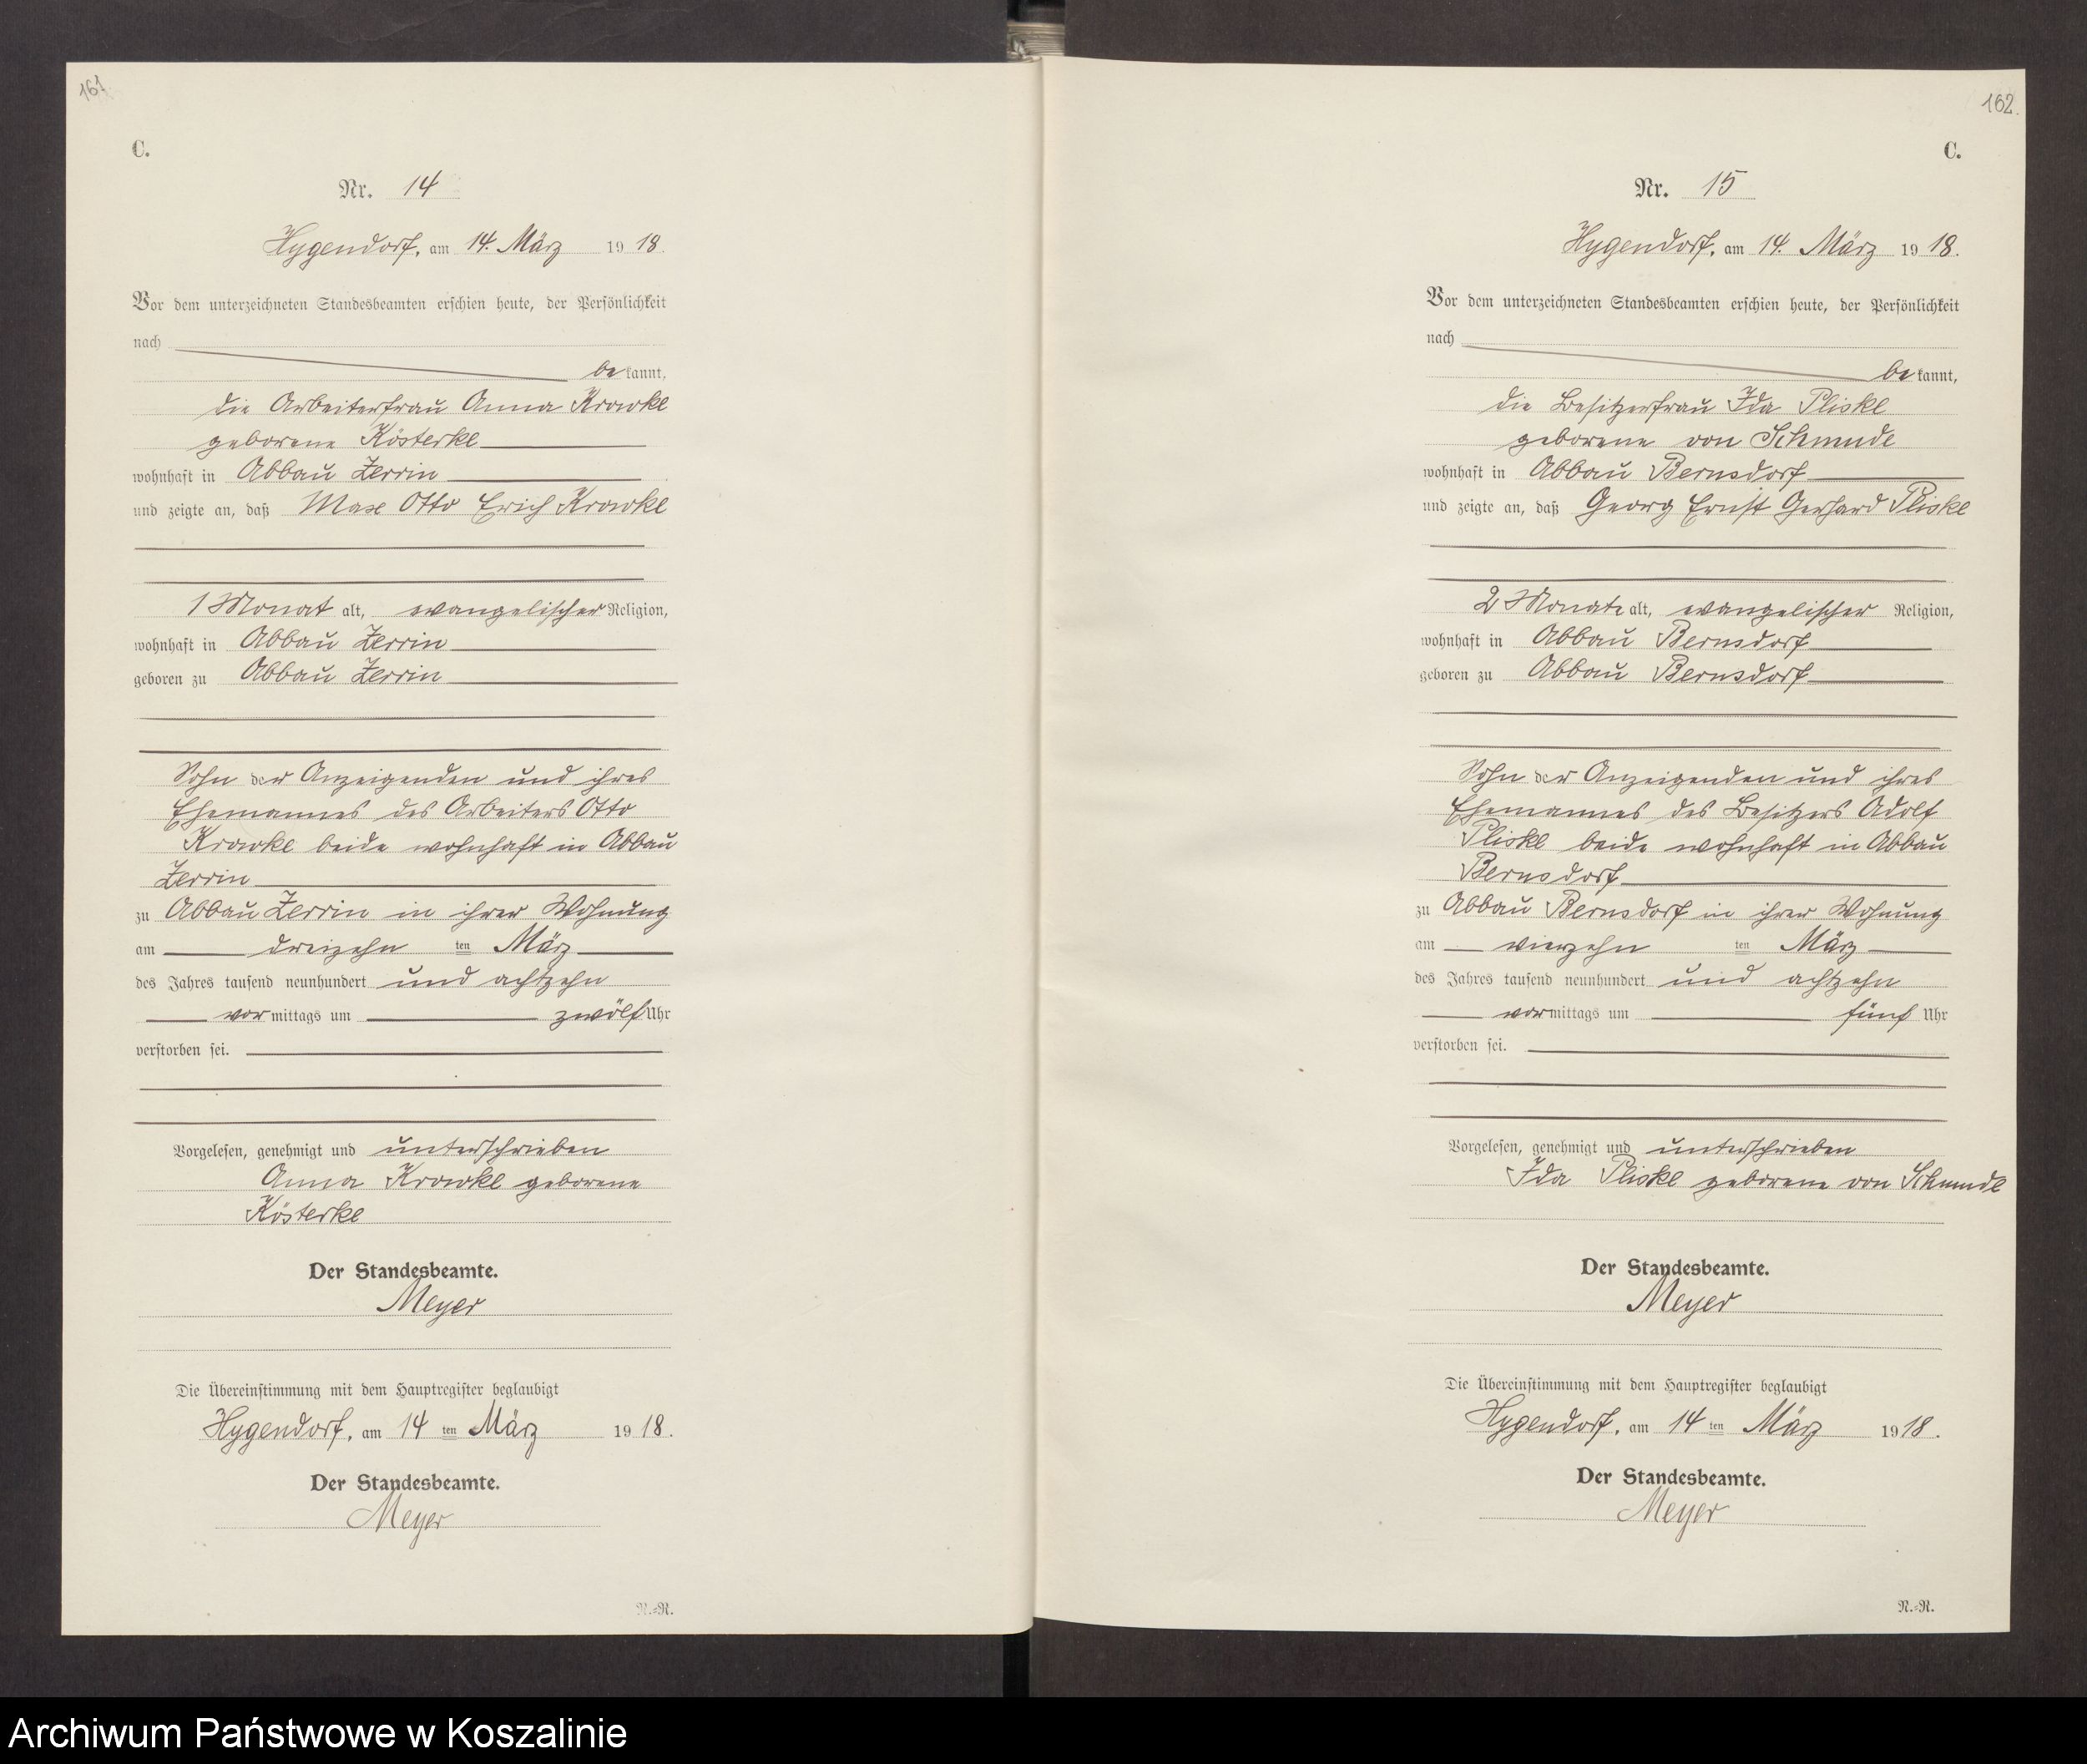 161
C.
Nr. 14
Hygendorf, am 14. März 1918.
Vor dem unterzeichneten Standesbeamten erschien heute, der Persönlichkeit
nach
bekannt,
die Arbeiterfrau Anna Krowke
geborene Kösterke
wohnhaft in Abbau Zerrin
und zeigte an, daß Max Otto Erich Krowke
1 Monat alt, evangelischer Religion,
wohnhaft in Abbau Zerrin
geboren zu Abbau Zerrin
Sohn der Anzeigenden und ihres
Ehemannes des Arbeiters Otto
Krowke beide wohnhaft in Abbau
Zerrin
zu Abbau Zerrin in ihrer Wohnung
am dreizehn ten März
des Jahres tausend neunhundert und achtzehn
vormittags um zwölf Uhr
verstorben sei.
Vorgelesen, genehmigt und unterschrieben
Anna Krowke geborene
Kösterke
Der Standesbeamte.
Meyer
Die Übereinstimmung mit dem Hauptregister beglaubigt
Hygendorf, am 14 ten März 1918.
Der Standesbeamte.
Meyer
N.=R.
162.
C.
Nr. 15
Hygendorf, am 14. März 1918.
Vor dem unterzeichneten Standesbeamten erschien heute, der Persönlichkeit
nach
bekannt,
die Besitzerfrau Ida Pliske
geborene von Schmude
wohnhaft in Abbau Bernsdorf
und zeigte an, daß Georg Ernst Gerhard Pliske
2 Monate alt, evangelischer Religion,
wohnhaft in Abbau Bernsdorf
geboren zu Abbau Bernsdorf
Sohn der Anzeigenden und ihres
Ehemannes des Besitzers Adolf
Pliske beide wohnhaft in Abbau
Bernsdorf
zu Abbau Bernsdorf in ihrer Wohnung
am vierzehn ten März
des Jahres tausend neunhundert und achtzehn
vormittags um fünf Uhr
verstorben sei.
Vorgelesen, genehmigt und unterschrieben
Ida Pliske geborene von Schmude
Der Standesbeamte.
Meyer
Die Übereinstimmung mit dem Hauptregister beglaubigt
Hygendorf, am 14 ten März 1918.
Der Standesbeamte.
Meyer
N.=R.
Archiwum Państwowe w Koszalinie